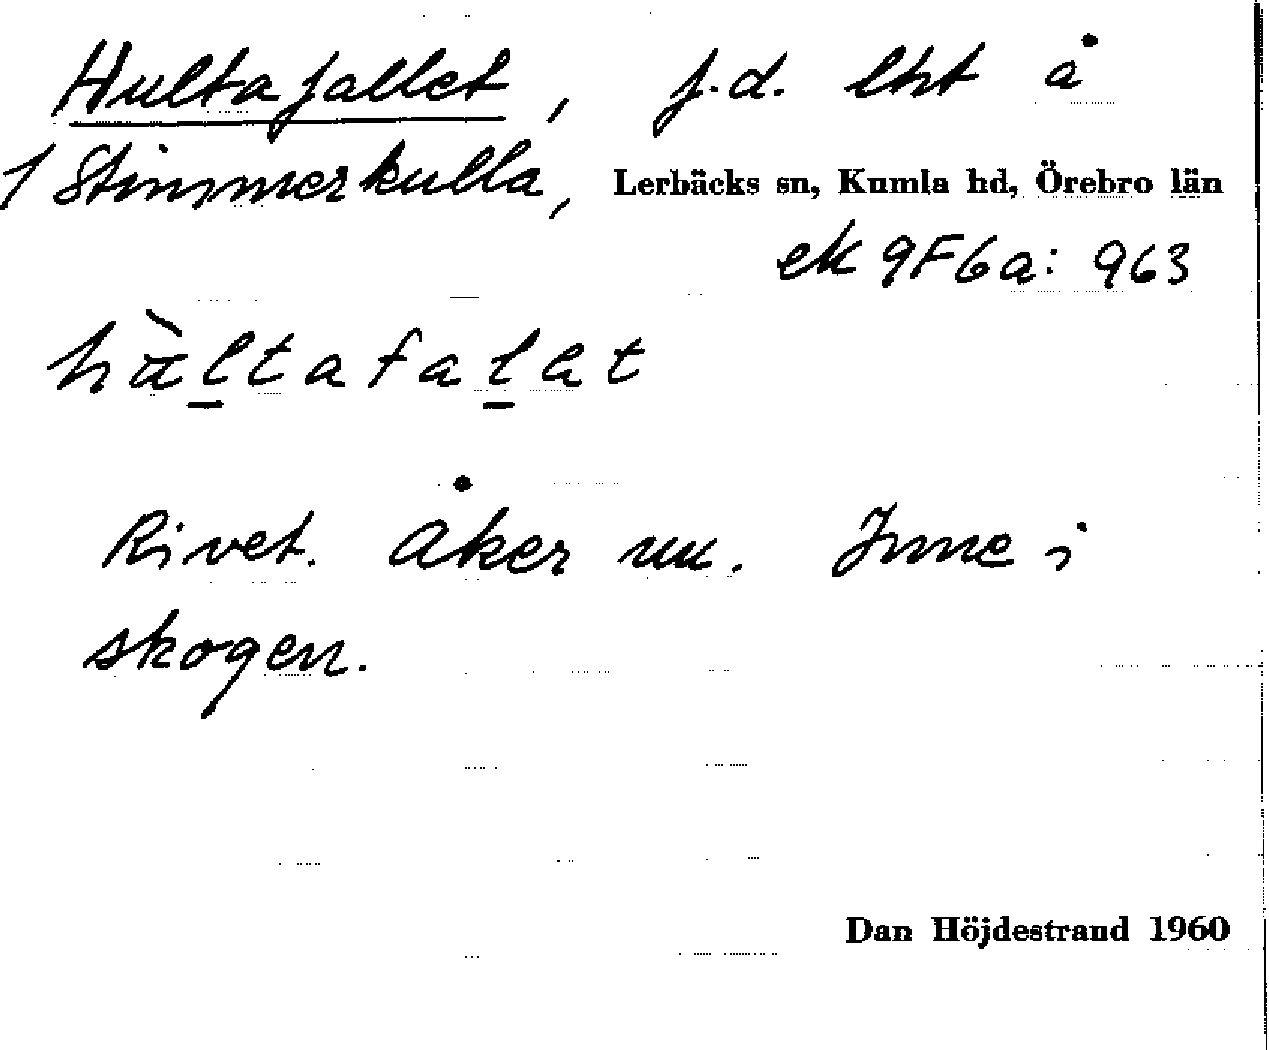 Hultafallet, f.d. lht å
1 Stimmerkulla, Lerbäcks sn, Kumla hd, Örebro län
ek 9F6a: 963
hàltafalat
Rivet. Åker nu. Inne i
skogen.
Dan Höjdestrand 1960